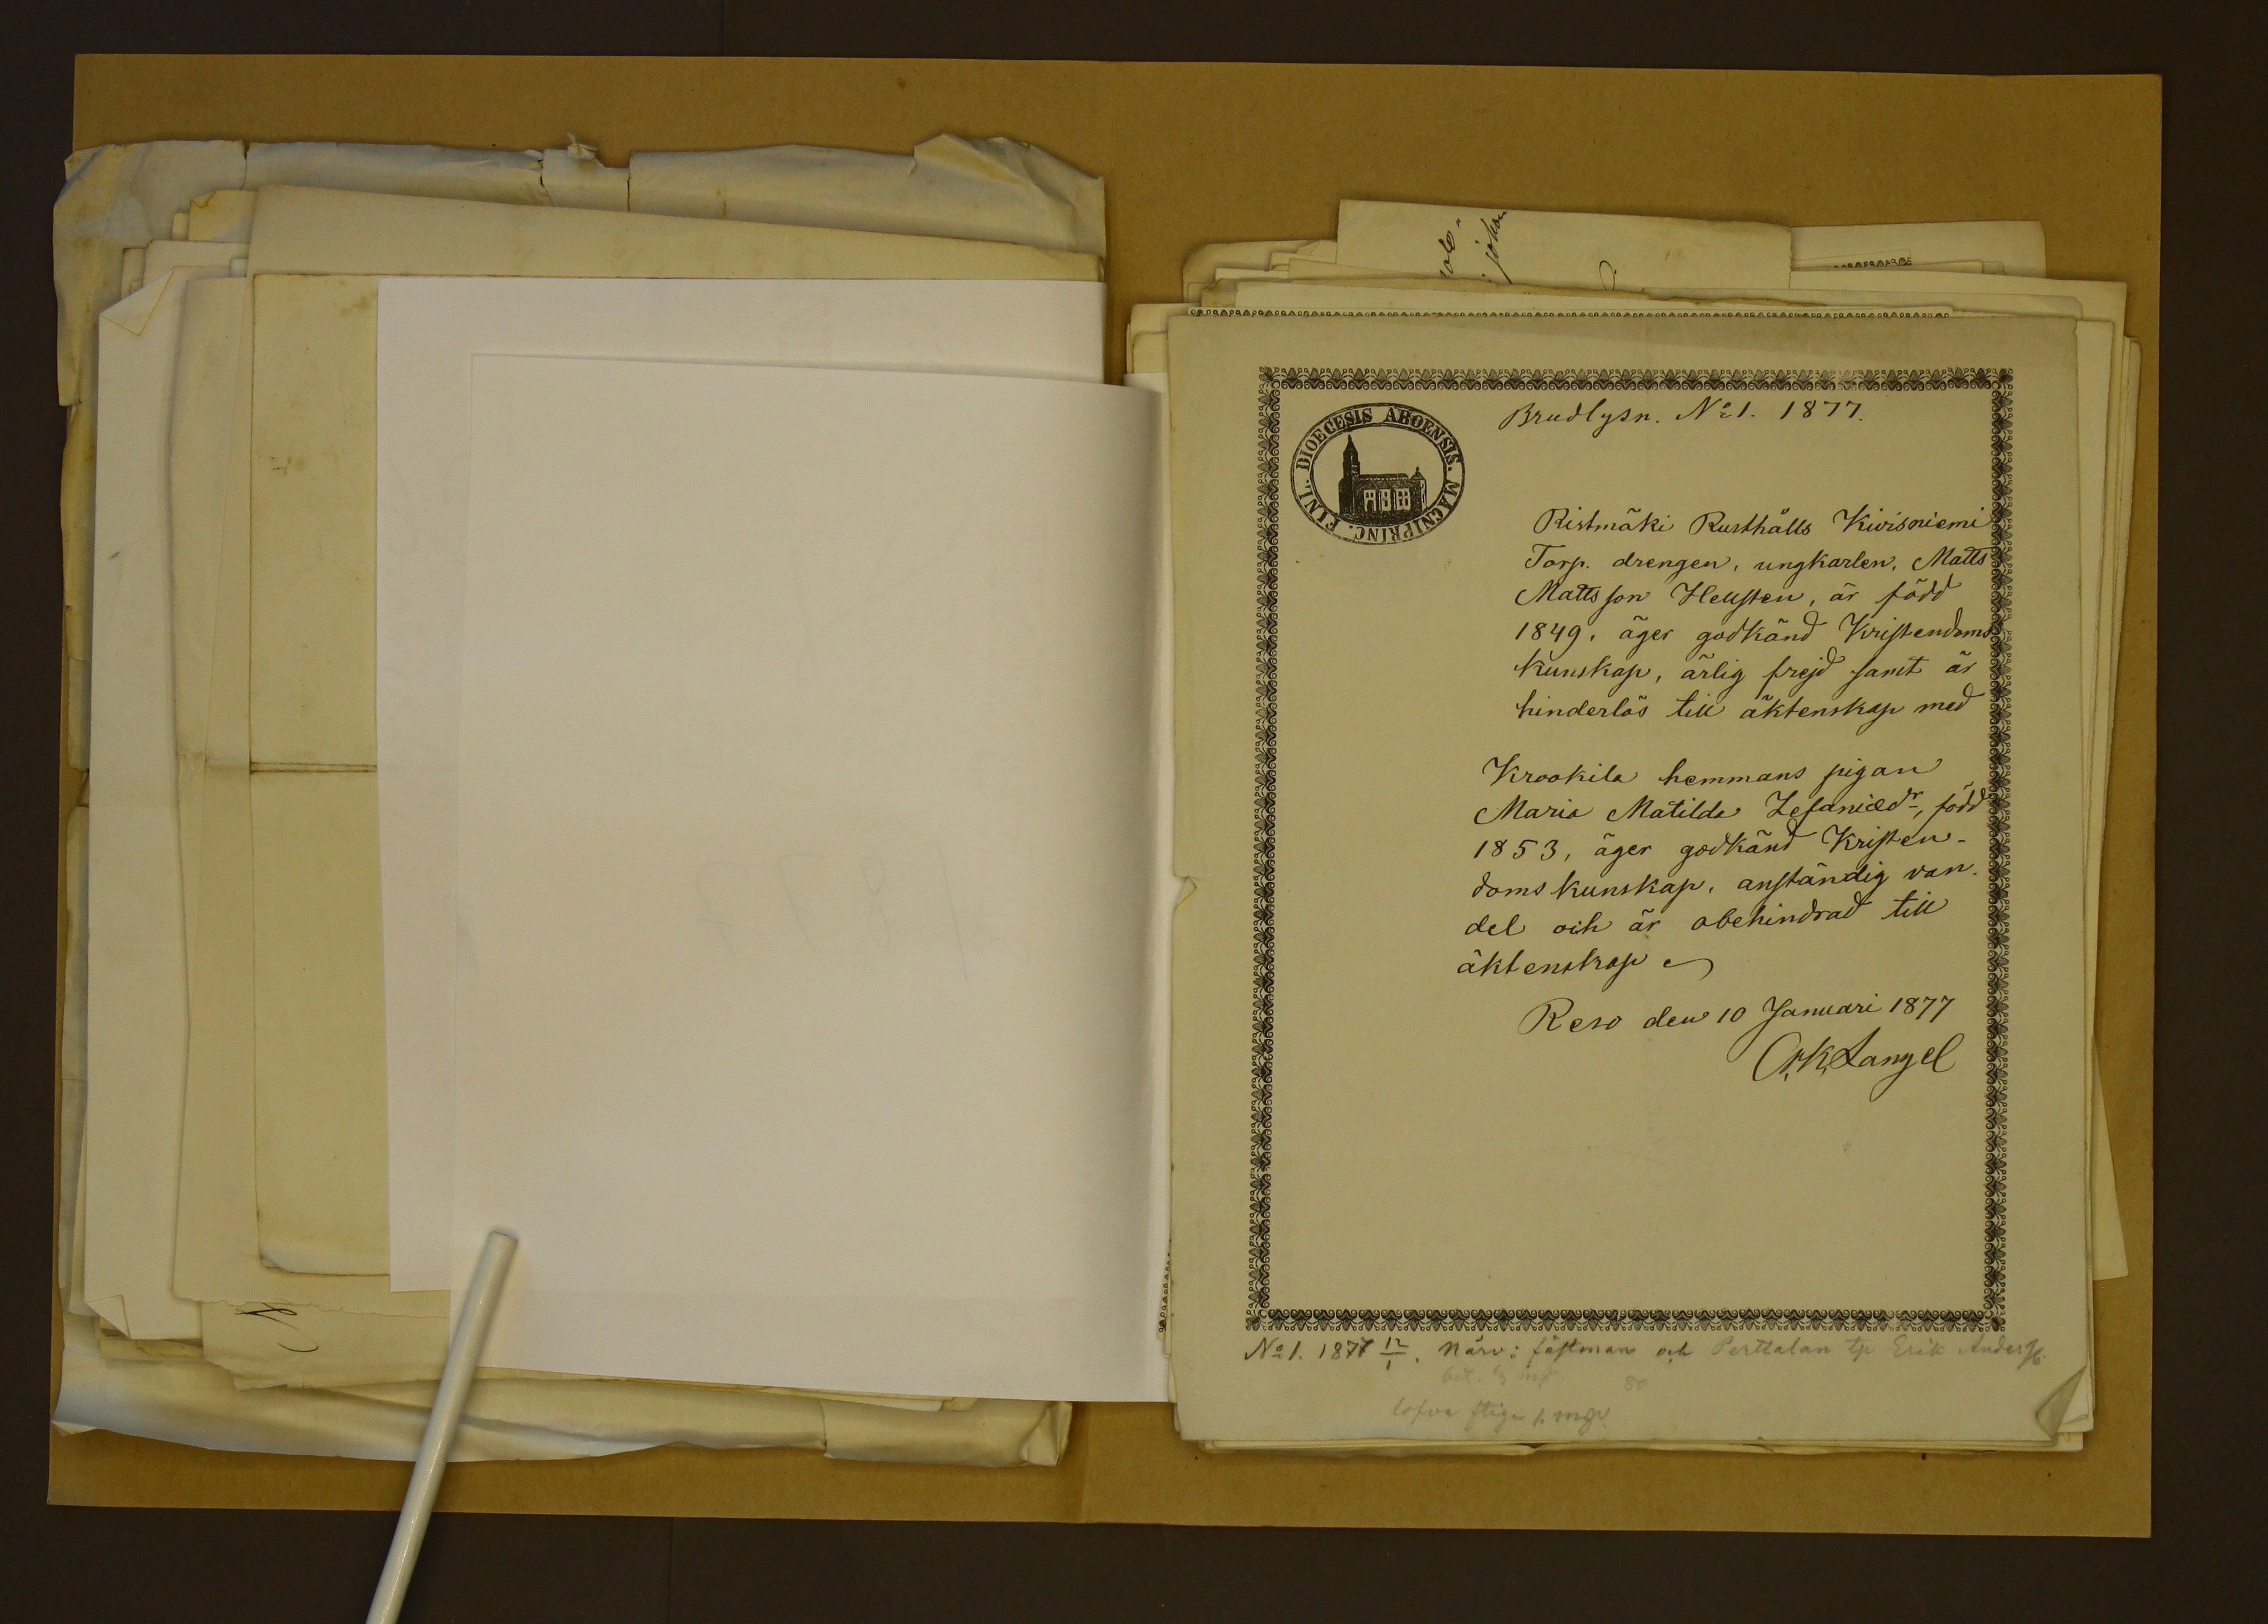 Brudlysn. No 1. 1877.
DIOECESIS ABOENSIS. MAGNIPRINC. FINL.
Ristmäki Rusthålls Kivisniemi
Torp. drengen, ungkarlen, Matts
Mattsson Hellsten, är född
1849, äger godkänd Kristendoms
kunskap, ärlig frejd samt är
hinderlös till äktenskap med
Krookila hemmans pigan
Maria Matilda Zefaniædr, född
1853, äger godkänd Kristen-
doms kunskap, anständig van-
del och är obehindrad till
äktenskap
Reso den 10 Januari 1877
Langel
No 1. 1877 12/1. Närv: fästman och Perttalan tp Erik Anders
80
1877